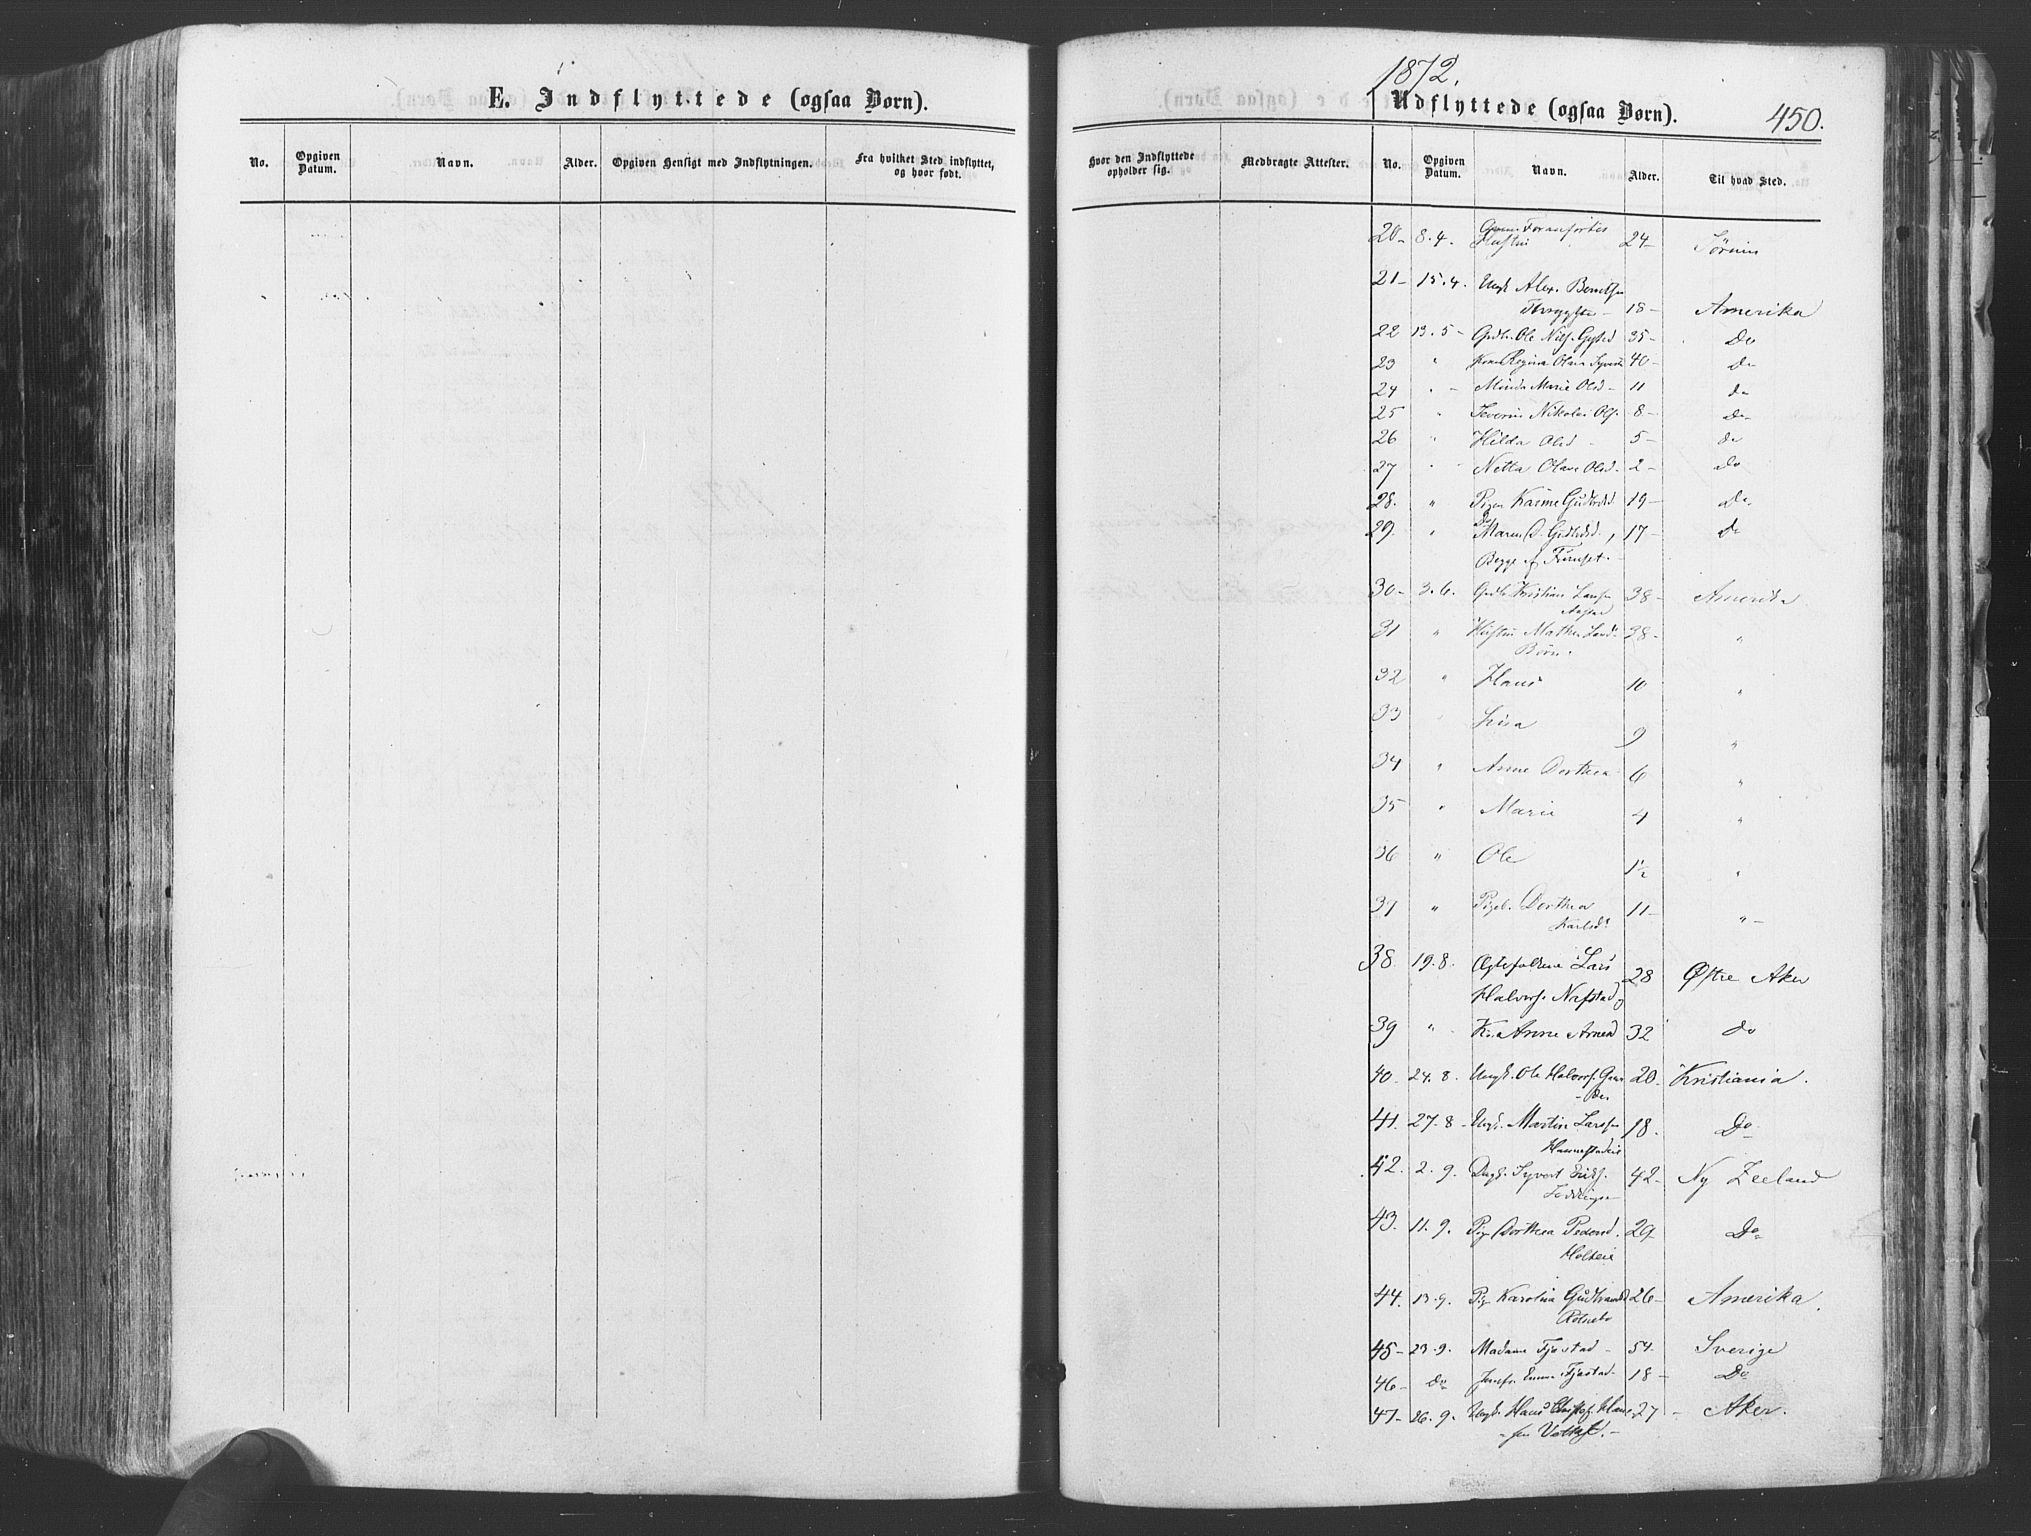 E. Indflyttede (ogsaa Børn).
No.
Opgiven Datum.
Navn.
Alder.
Opgiven Hensigt med Indflytningen.
Fra hvilket Sted indflyttet, og hvor født.
1872.
Udflyttede (ogsaa Børn).
450.
Hvor den Indflyttede opholder sig.
Medbragte Attester.
No.
Opgiven Datum.
Navn.
Alder.
Til hvad Sted.
20- 8.4. 24-
21- 15.4. Ungk Alex. Berntsen
18- Amerika
22 13.5- Gdbr. Ole Nils. 35- Do
23 " Kone Regine Olava 40- Do
24 " - Minda Marie Olsd - 11 do
25 " Severin Nikolai Ols. 8- Do
26 " Hilda Olsd - 5- do
27 " Netta Olava Olsd. 2- do
28. " Pigen Karine Gudbrdsd. 19- Do
29. " Do Maren 17- do
Begge af
30- 3.6. Gdbr. Kristian Larsen 38- Amerika
31 " Hustru Mathea Larsd. 38- "
Børn.
32 " Hans 10 "
33 " Lisa 9 "
34 " Anne Dorthea 6 "
35 " Marie 4 "
36 " Ole 1½ "
37 " Pigeb. Dorthea 11- "-
Karlsd.
38. 19.8. Ægtefolkene Lars 28 Østre Aker
Halvors. Nafstad og
39 " K. Anne Arnesd 32 do
40- 24.8. Ungk. Ole Halvors. 20- Kristiania.
41. 27-8- Ungk. Martin Larsen 18. Do
42. 2.9. Syvert Eriks. 42- Ny Zeeland
43. 11.9. Pig. Dorthea Pedersd. 29 Do
Holteie
44. 13.9. Pig. Karolina Gudbrandsd 26- Amerika.
45- 23.9. Madame Fjestad - 54. Sverige
46- Do Jomfr. Emma Fjestad - 18- Do
47- 26.9. Ungk. Hans Kristof. Han 27- Aker.
-sen